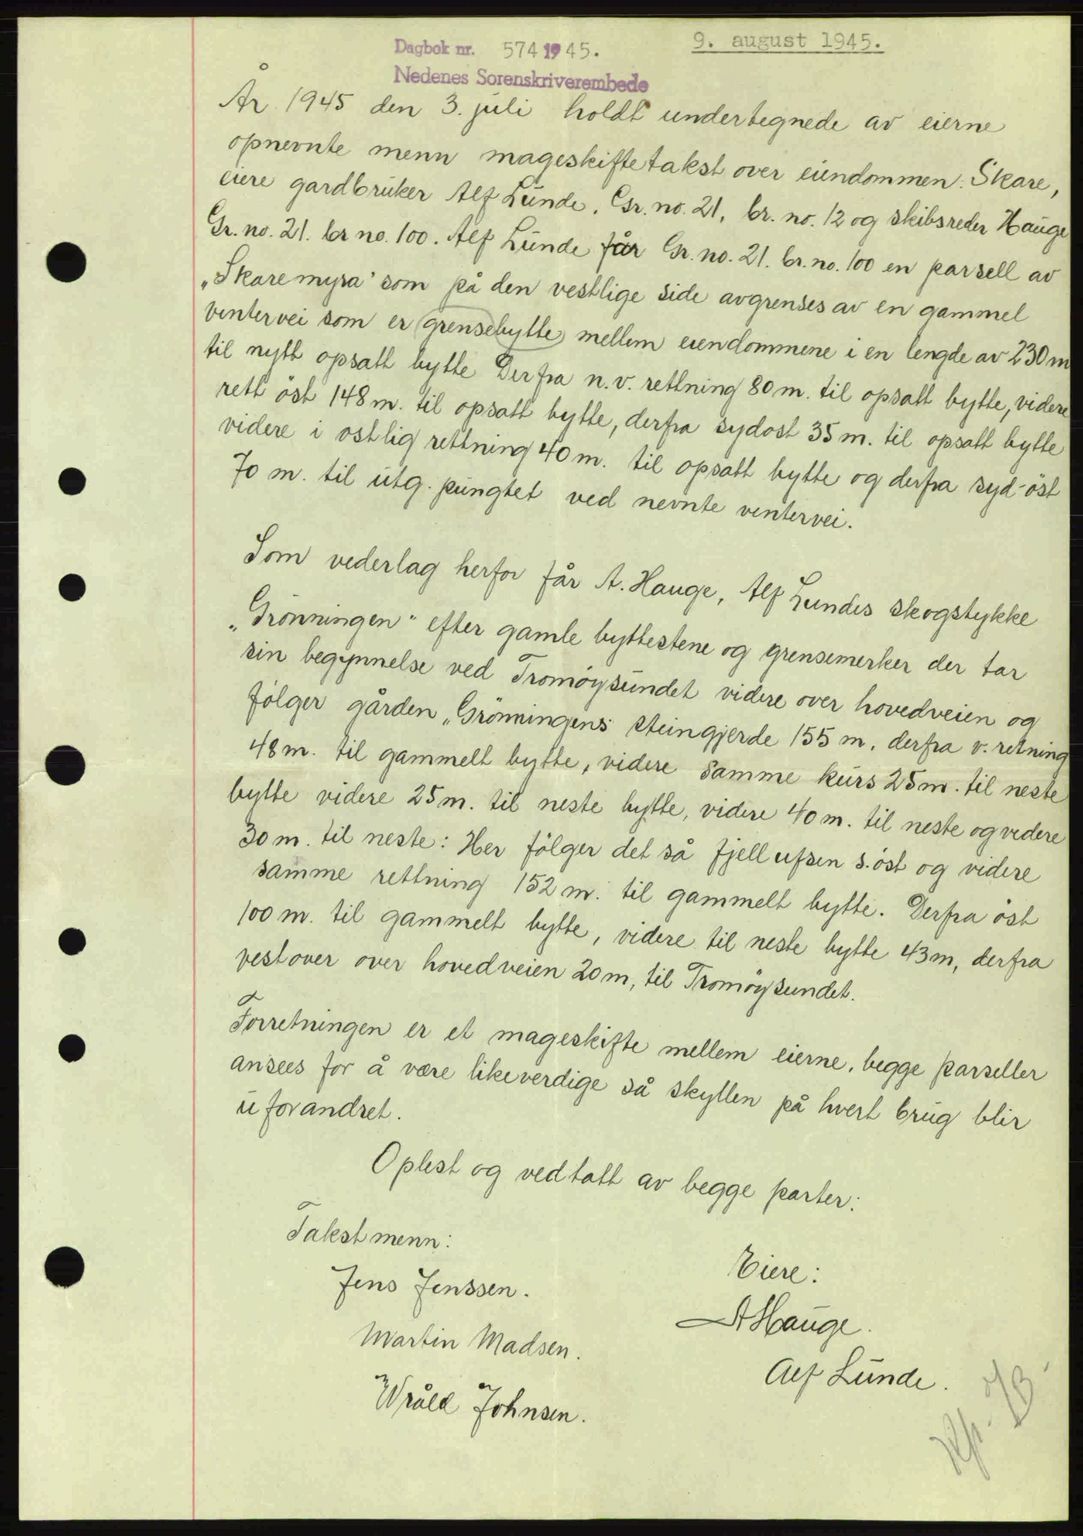 Dagbok nr. 574 1945.
9. august 1945.
Nedenes Sorenskriverembede
År 1945 den 3. juli holdt undertegnede av eierne
opnevnte menn mageskiftetakst over eiendommen: Skare,
eiere gardbruker Alf Lunde, Gr. no. 21, br. no. 12 og skibsreder Hauge
Gr. no. 21. br no. 100. Alf Lunde får Gr. no. 21. br. no. 100 en parsell av
„Skaremyra" som på den vestlige side avgrenses av en gammel
vintervei som er grensebytte mellem eiendommene i en lengde av 230 m
til nytt opsatt bytte Derfra n.v. rettning 80 m. til opsatt bytte, videre
rett öst 148 m. til opsatt bytte, derfra sydost 35 m. til opsatt bytte
videre i ostlig rettning 40 m. til opsatt bytte og derfra syd-öst
70 m. til utg. pungtet ved nevnte vintervei.
Som vederlag herfor får A. Hauge, Alf Lundes skogstykke
„Grönningen" efter gamle byttestene og grensemerker der tar
sin begynnelse ved Tromöysundet videre over hovedveien og
fölger gården „Grönningens steingjerde 155 m, derfra v. retning
48 m. til gammelt bytte, videre samme kurs 25 m. til neste
bytte videre 25 m. til neste bytte, videre 40 m. til neste og videre
30 m. til neste: Her fölger det så fjellufsen s. öst og videre
samme rettning 152 m. til gammelt bytte. Derfra öst
100 m. til gammelt bytte, videre til neste bytte 43 m, derfra
vestover over hovedveien 20 m, til Tromöysundet.
Forretningen er et mageskifte mellem eierne, begge parseller
ansees for å være likeverdige så skyllen på hvert brug blir
uforandret.
Oplest og vedtatt av begge parter:
Takstmenn:
Eiere:
Jens Jenssen.
A Hauge.
Martin Madsen.
Alf Lunde.
Wråld Johnsen.